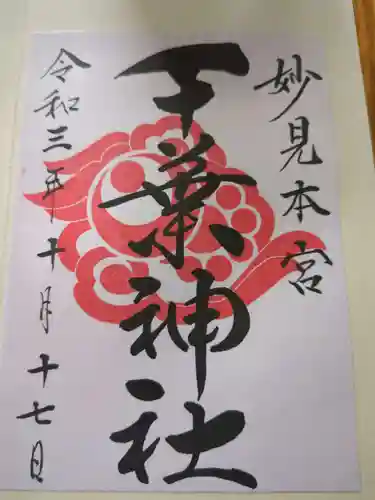 妙見本宮
千葉神社
令和三年十月十七日